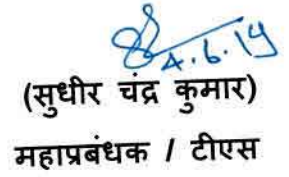 4.6.14
(सुधीर चंद्र कुमार)
महाप्रबंधक / टीएस